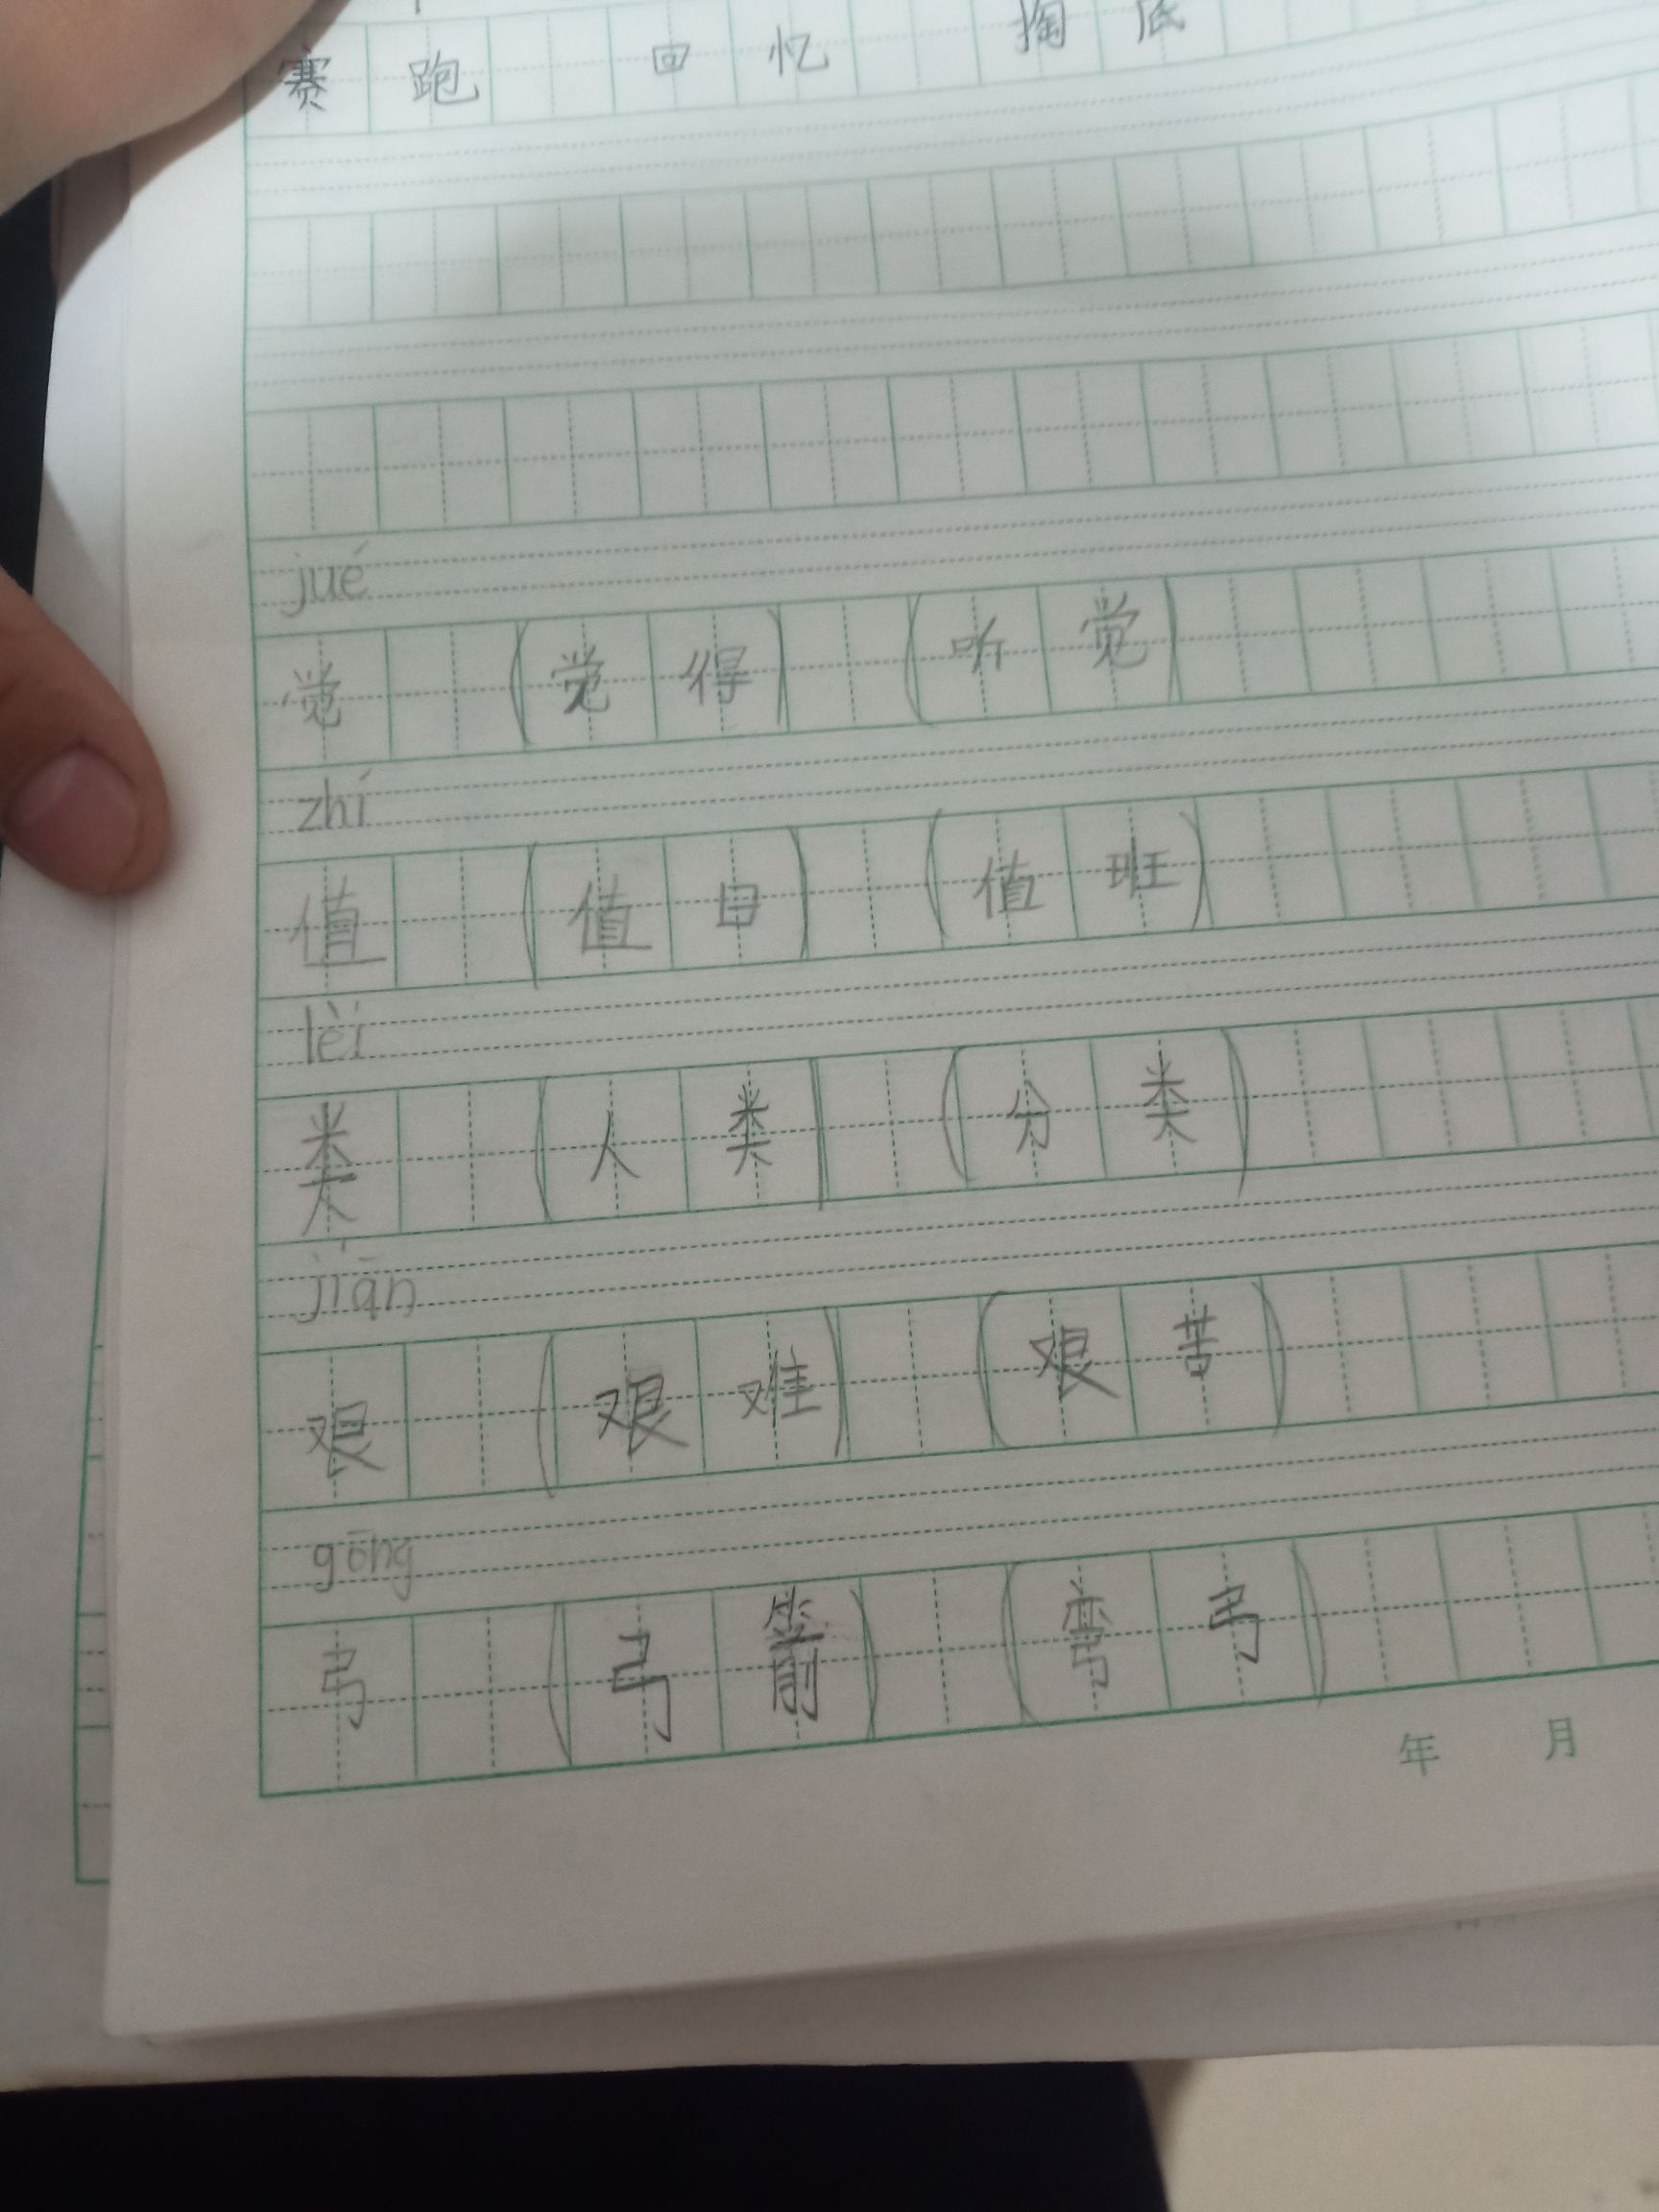 赛跑 回忆 掏底
jué
觉 (觉得) (听觉)
zhí
值 (值日) (值班)
lèi
类 (人类) (分类)
jiān
艰 (艰难) (艰苦)
gōng
弓 (弓箭) (弯弓)
年 月